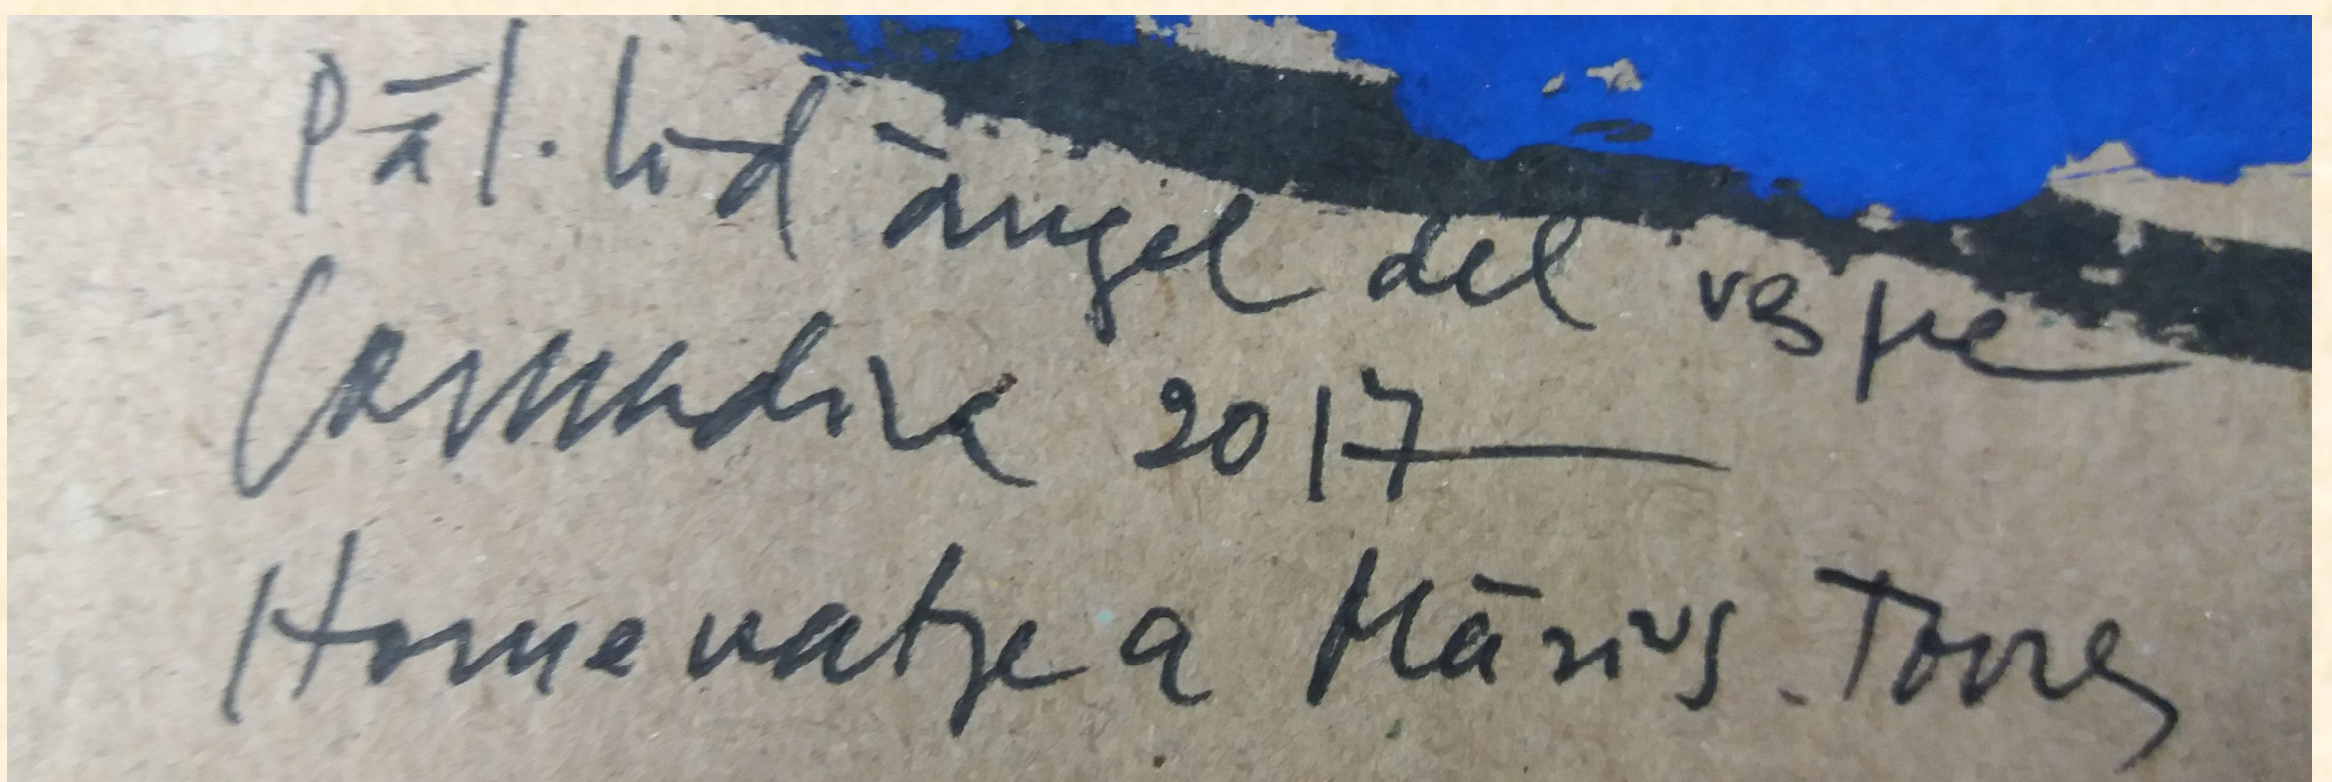 Pàl·lid àngel del vespre
Camadira 2017
Homenatge a Màrius Torres